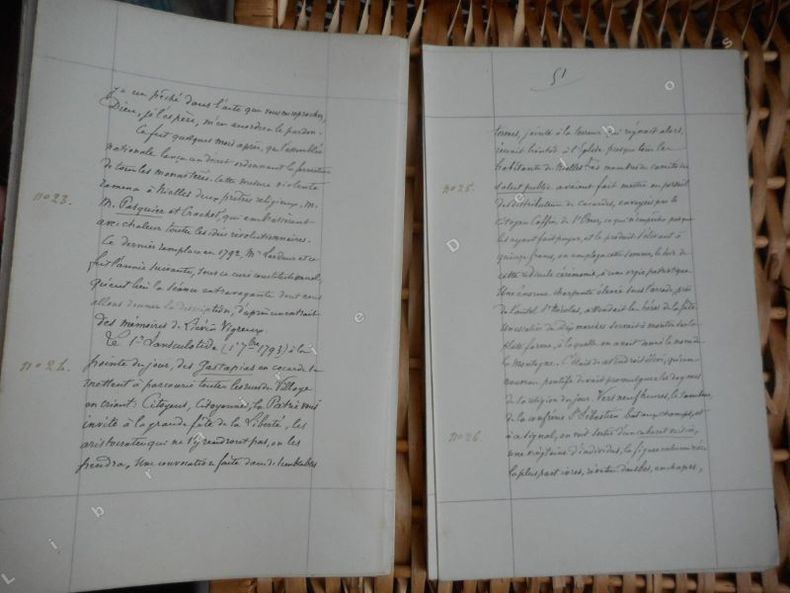 y a un péché dans l'acte que vous me reprochez,
Dieu, je l'espère, m'en accordera le pardon.
Ce fut quelques mois après, que l'assemblée
nationale lança un décret ordonnant la fermeture
de tous les monastères. Cette mesure violente
amena à Nialles deux prêtres religieux, M.
n° 23.
M. Pasquier et Crochet, qui embrassèrent
avec chaleur toutes les idées révolutionnaires.
Ce dernier remplaça en 1792, Mr Lardeur et ce
fut l'année suivante, sous ce curé constitutionnel,
qu'eut lieu la scène extravagante dont nous
allons donner la description, d'après un extrait
des mémoires de Piéris Vigreux.
Le 1er Sansculotide (17 7bre 1793) à la
n° 24.
pointe du jour, des gens en cocarde se
mettent à parcourir toutes les rues du Village
en criant: Citoyens, Citoyennes, la Patrie vous
invite à la grande fête de la Liberté, les
aristocrates qui ne s'y rendront pas, on les
prendra, une convocation faite dans de semblables
51
termes, jointe à la terreur qui régnait alors,
réunit bientôt à l'Eglise presque tous les
habitants de Nialles. Les membres du comité de
n° 25.
salut public avaient fait mettre un
des distributeurs de cocardes, envoyées par le
citoyen Caffieri de St Omer, ce qui n'empêcha pas que
les ayant fait payer, et le produit s'élevant à
quinze francs, on employa cette somme, le soir de
cette ridicule cérémonie, à une orgie patriotique
Une énorme charpente élevée sous l'arcade, près
de l'autel St Nicolas, attendait les héros de la fête.
Un escalier de dix marches servait à monter sur la
plate forme, à laquelle on avait donné le nom de
la Montagne. C'était de cet endroit élevé, qu'un
nouveau pontife devait promulguer les dogmes
de la religion du jour. Vers neuf heures, le tambour
de la confrérie St Sébastien bat aux champs, et
n° 26.
à ce signal, on voit sortir d'un cabaret voisin,
une vingtaine d'individus, la figure enluminée
la plus part ivres, revêtus d'aubes, en chapes,
Libr e D e l o s